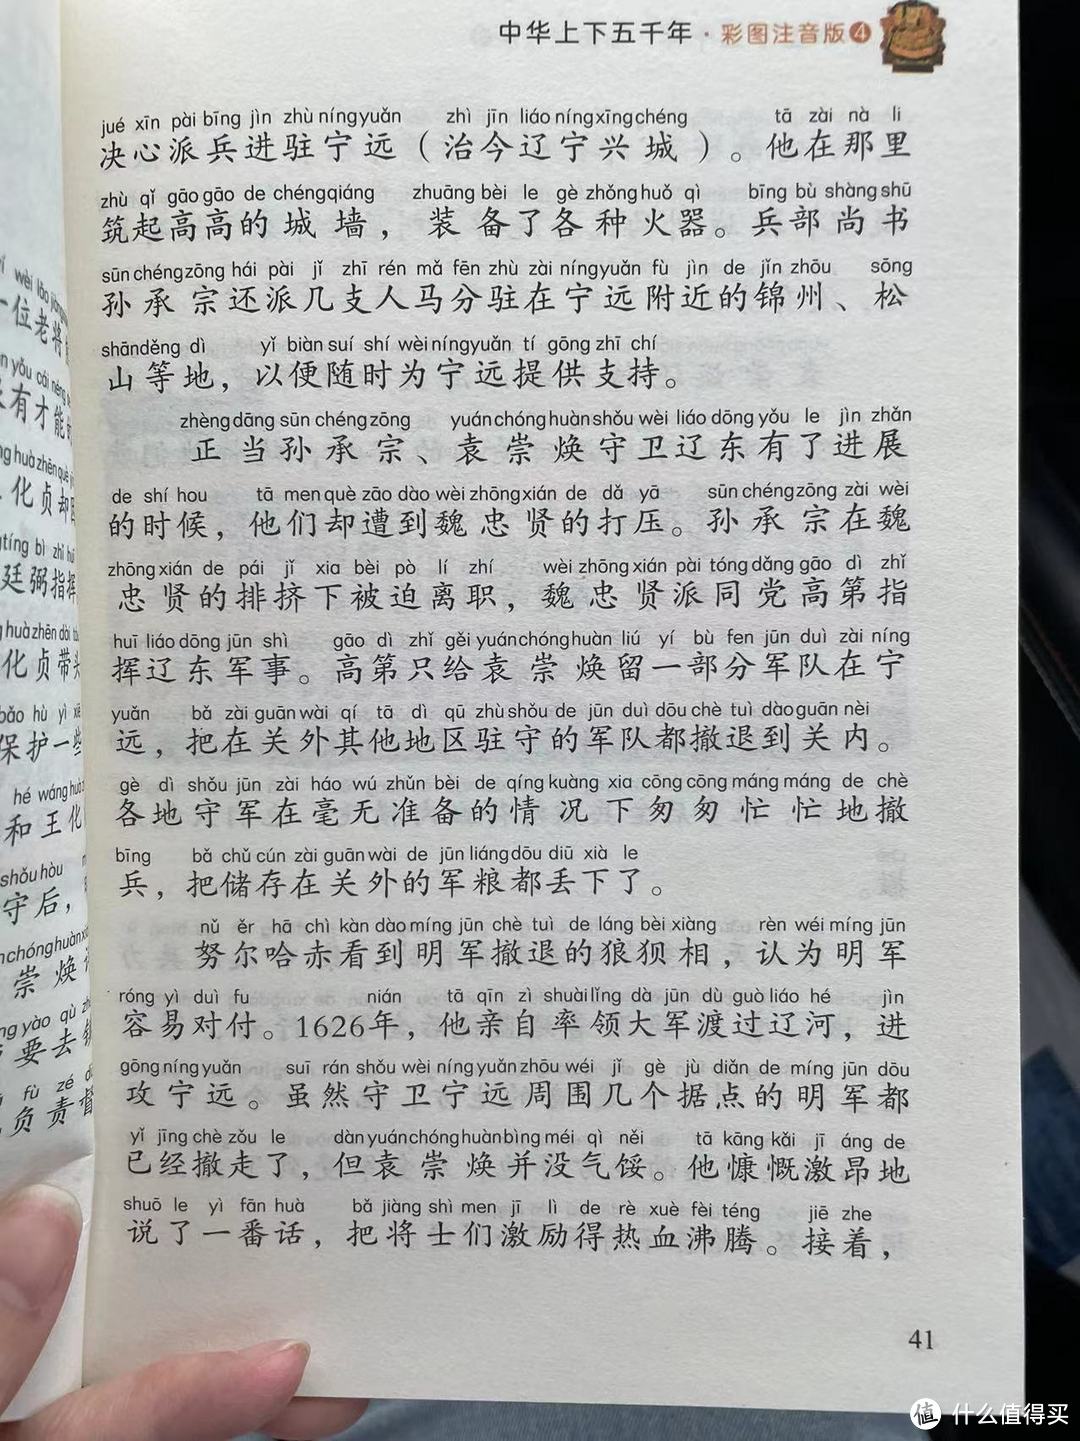 中华上下五千年·彩图注音版4
jué xīn pài bīng jìn zhù níngyuǎn zhì jīn liáo níngxīngchéng tā zài nà li
决心派兵进驻宁远（治今辽宁兴城）。他在那里
zhù qǐ gāo gāo de chéngqiáng zhuāng bèi le gè zhǒng huǒ qì bīng bù shàng shū
筑起高高的城墙，装备了各种火器。兵部尚书
sūn chéngzōng hái pài jǐ zhī rén mǎ fēn zhù zài níngyuǎn fù jìn de jǐn zhōu sōng
孙承宗还派几支人马分驻在宁远附近的锦州、松
shānděng dì yǐ biàn suí shí wèi níngyuǎn tí gōng zhī chí
山等地，以便随时为宁远提供支持。
zhèngdāng sūn chéngzōng yuánchónghuàn shǒu wèi liáo dōng yǒu le jìn zhǎn
正当孙承宗、袁崇焕守卫辽东有了进展
de shí hou tā men què zāo dào wèi zhōngxián de dǎ yā sūn chéngzōng zài wèi
的时候，他们却遭到魏忠贤的打压。孙承宗在魏
zhōngxián de pái jǐ xia bèi pò lí zhí wèi zhōngxián pài tóngdǎng gāo dì zhǐ
忠贤的排挤下被迫离职，魏忠贤派同党高第指
huī liáo dōng jūn shì gāo dì zhǐ gěi yuánchónghuàn liú yí bù fen jūn duì zài níng
挥辽东军事。高第只给袁崇焕留一部分军队在宁
yuǎn bǎ zài guān wài qí tā dì qū zhù shǒu de jūn duì dōu chè tuì dào guān nèi
远，把在关外其他地区驻守的军队都撤退到关内。
gè dì shǒu jūn zài háo wú zhǔn bèi de qíng kuàng xia cōng cōng máng máng de chè
各地守军在毫无准备的情况下匆匆忙忙地撤
bīng bǎ chǔ cún zài guān wài de jūn liáng dōu diū xià le
兵，把储存在关外的军粮都丢下了。
nǔ ěr hā chì kàn dào míng jūn chè tuì de láng bèi xiàng rèn wéi míng jūn
努尔哈赤看到明军撤退的狼狈相，认为明军
róng yì duì fu nián tā qīn zì shuài lǐng dà jūn dù guò liáo hé jìn
容易对付。1626年，他亲自率领大军渡过辽河，进
gōng níng yuǎn suī rán shǒu wèi níng yuǎn zhōu wéi jǐ gè jù diǎn de míng jūn dōu
攻宁远。虽然守卫宁远周围几个据点的明军都
yǐ jīng chè zǒu le dàn yuánchónghuàn bìng méi qì něi tā kāng kǎi jī áng de
已经撤走了，但袁崇焕并没气馁。他慷慨激昂地
shuō le yì fān huà bǎ jiàng shì men jī lì de rè xuè fèi téng jiē zhe
说了一番话，把将士们激励得热血沸腾。接着，
41
值 什么值得买